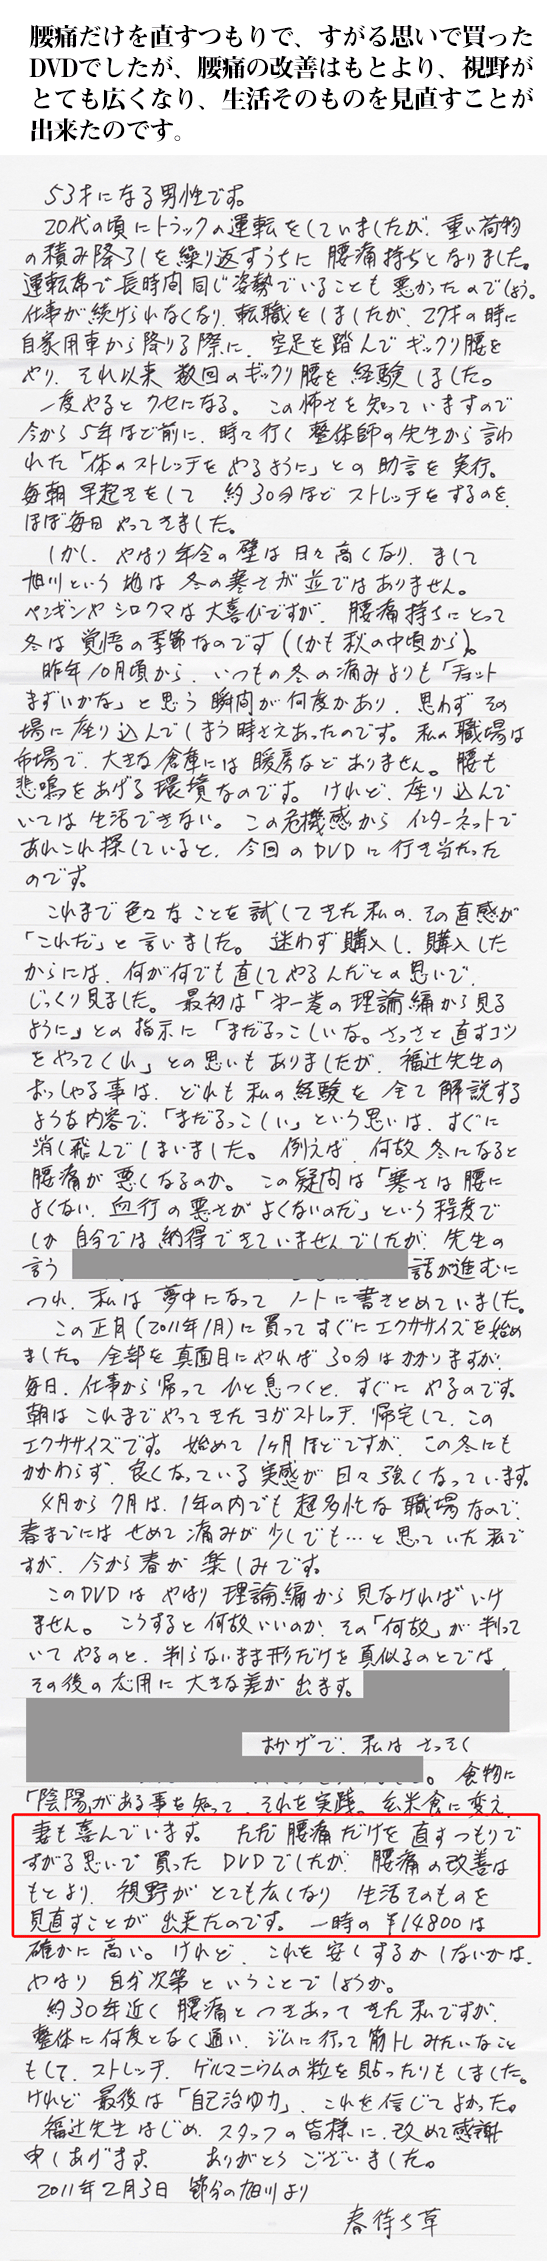 腰痛だけを直すつもりで、すがる思いで買った
DVDでしたが、腰痛の改善はもとより、視野が
とても広くなり、生活そのものを見直すことが
出来たのです。
53才になる男性です。
20代の頃にトラックの運転をしていましたが、重い荷物
の積み降ろしを繰り返すうちに腰痛持ちとなりました。
運転席で長時間同じ姿勢でいることも悪かったのでしょう。
仕事が続けられなくなり、転職をしましたが、27才の時に
自家用車から降りる際に、空足を踏んでギックリ腰を
やり、それ以来数回のギックリ腰を経験しました。
一度やるとクセになる。この怖さを知っていますので
今から5年ほど前に、時々行く整体師の先生から言わ
れた「体のストレッチをやるように」との助言を実行。
毎朝早起きをして約30分ほどストレッチをするのを、
ほぼ毎日やってきました。
しかし、やはり年令の壁は日々高くなり、まして
旭川という地は冬の寒さが並ではありません。
ペンギンやシロクマは大喜びですが、腰痛持ちにとって
冬は覚悟の季節なのです(しかも秋の中頃から)。
昨年10月頃から、いつもの冬の痛みよりも「チョット
まずいかな」と思う瞬間が何度かあり、思わずその
場に座り込んでしまう時さえあったのです。私の職場は
市場で、大きな倉庫には暖房などありません。腰も
悲鳴をあげる環境なのです。けれど、座り込んで
いては生活できない。この危機感からインターネットで
あれこれ探していると、今回のDVDに行き当たった
のです。
これまで色々なことを試してきた私の、その直感が
「これだ」と言いました。迷わず購入し、購入した
からには、何が何でも直してやるんだとの思いで、
じっくり見ました。最初は「第一巻の理論編から見る
ように」との指示に「まだるっこしいな。さっさと直すコツ
をやってくれ」との思いもありましたが、福辻先生の
おっしゃる事は、どれも私の経験を全て解説する
ような内容で、「まだるっこしい」という思いは、すぐに
消し飛んでしまいました。例えば、何故冬になると
腰痛が悪くなるのか。この疑問は「寒さは腰に
よくない、血行の悪さがよくないのだ」という程度で
しか自分では納得できていませんでしたが、先生の
言う 話が進むに
つれ、私は夢中になってノートに書きとめていました。
この正月(2011年1月)に買ってすぐにエクササイズを始め
ました。全部を真面目にやれば30分はかかりますが、
毎日、仕事から帰ってひと息つくと、すぐにやるのです。
朝はこれまでやってきたヨガストレッチ、帰宅して、この
エクササイズです。始めて1ヶ月ほどですが、この冬にも
かかわらず、良くなっている実感が日々強くなっています。
4月から7月は、1年の内でも超多忙な職場なので、
春までにはせめて痛みが少しでも…と思っていた私で
すが、今から春が楽しみです。
このDVDはやはり理論編から見なければいけ
ません。こうすると何故いいのか、その「何故」が判って
いてやるのと、判らないまま形だけを真似るのとでは、
その後の応用に大きな差が出ます。
おかげで、私はさっそく
。食物に
「陰陽」がある事を知って、それを実践。玄米食に変え、
妻も喜んでいます。ただ腰痛だけを直すつもりで
すがる思いで買ったDVDでしたが、腰痛の改善は
もとより、視野がとても広くなり生活そのものを
見直すことが出来たのです。一時の¥14800は
確かに高い。けれど、これを安くするかしないかは、
やはり自分次第ということでしょうか。
約30年近く腰痛とつきあってきた私ですが、
整体に何度となく通い、ジムに行って筋トレみたいなこと
もして、ストレッチ、ゲルマニウムの粒を貼ったりもしました。
けれど最後は「自己治ゆ力」、これを信じてよかった。
福辻先生はじめ、スタッフの皆様に、改めて感謝
申しあげます。ありがとうございました。
2011年2月3日 節分の旭川より
春待ち草